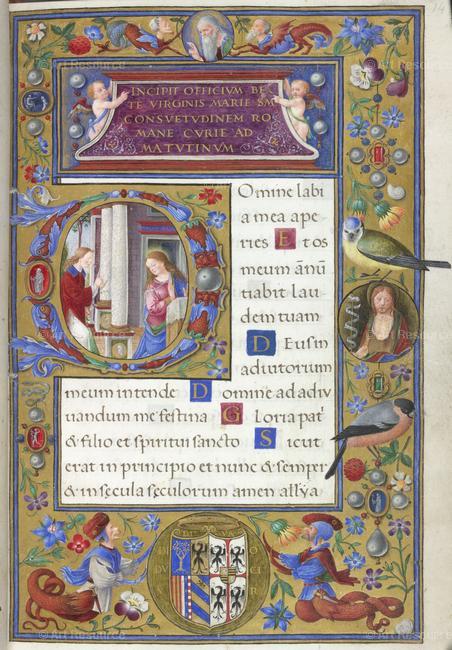 INCIPIT OFFICIVM BE
TE VIRGINIS MARIE SM
CONSVETVDINEM RO
MANE CVRIE AD
MATVTINVM
Omine labi
a mea ape
ries Et os
meum ānū
tiabit lau
dem tuam
Deus in
adiutorium
meum intende Domine ad adiu
uandum me festina Gloria pat̄
& filio et spiritui sancto Sicut
erat in principio et nunc & semper
& in secula seculorum amen all'ya
14
© Art Resource